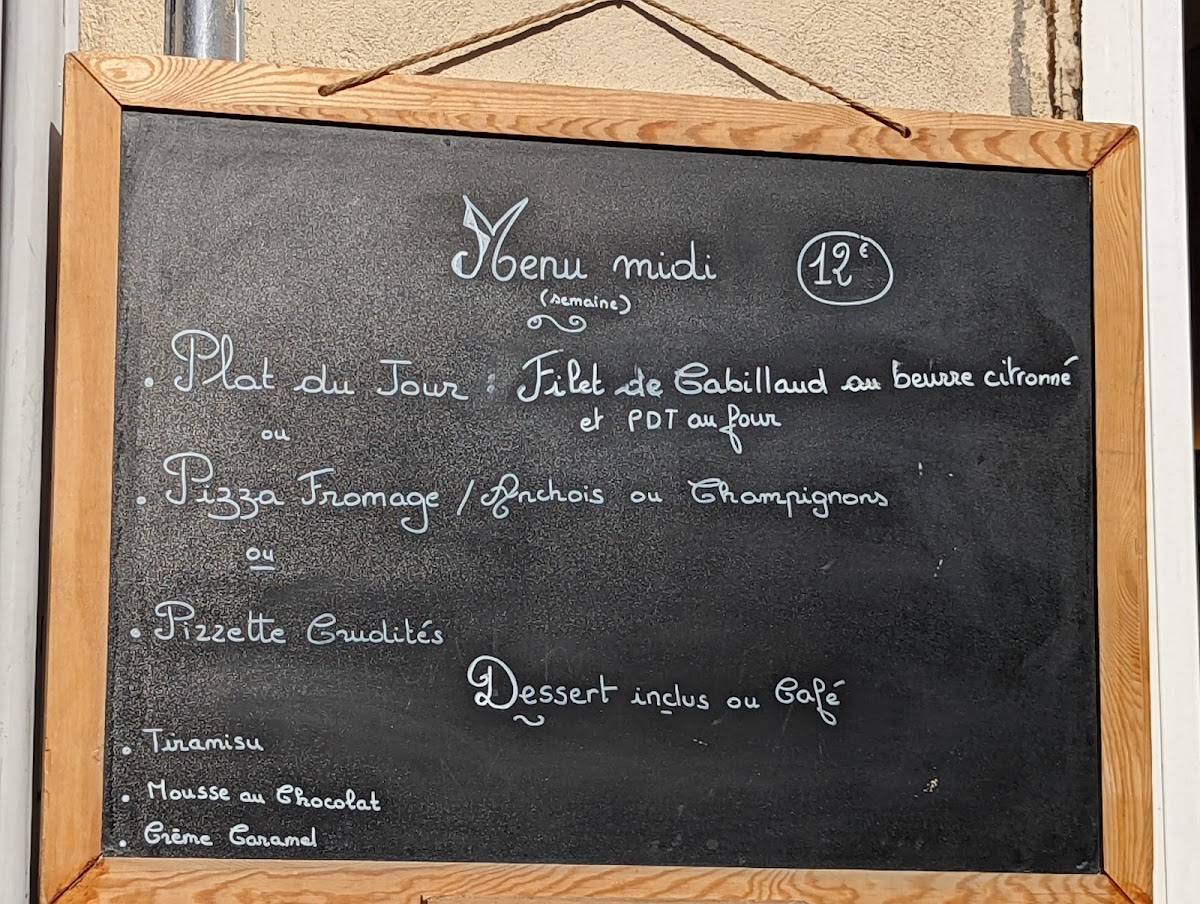 Menu midi 12€
(semaine)
• Plat du Jour : Filet de Cabillaud au beurre citronné
et PDT au four
ou
• Pizza Fromage / Anchois ou Champignons
ou
• Pizzette Crudités
Dessert inclus ou Café
• Tiramisu
• Mousse au Chocolat
• Crème Caramel